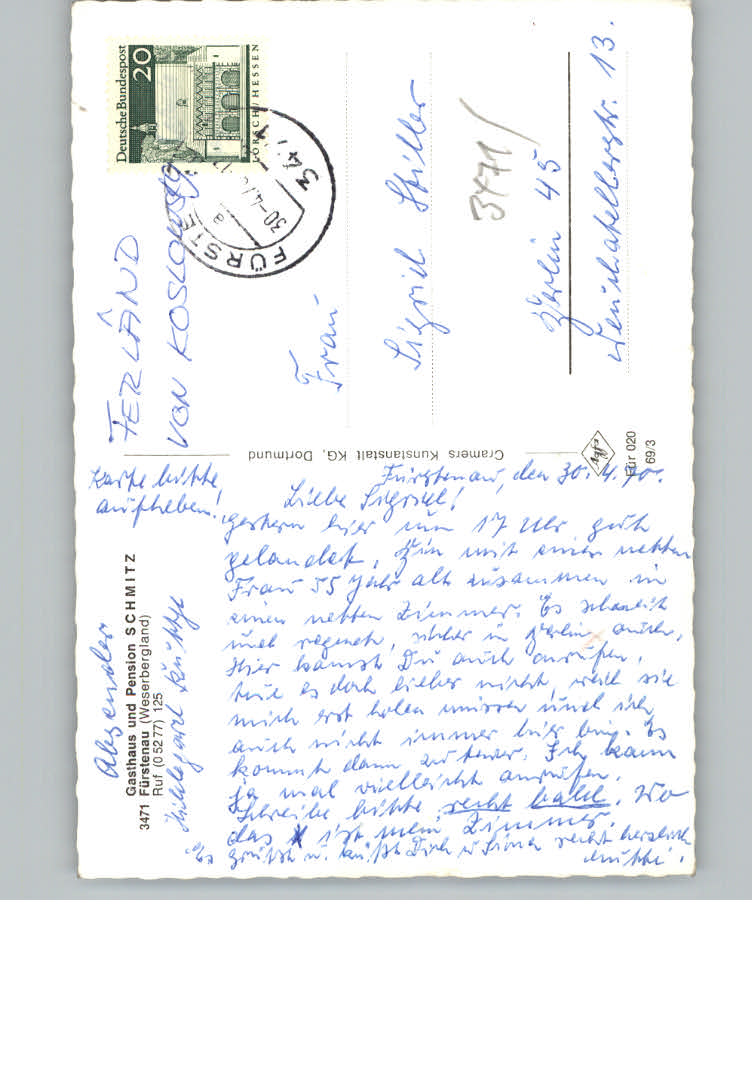 Karte bitte
aufheben!
Fürstenau, den 30.4.70.
Liebe Sigrid!
gestern hier um 17 Uhr gut
gelandet, Bin mit einer netten
Frau 55 Jahr alt zusammen in
einen netten Zimmer. Es schneit
und regnet, sicher in Berlin auch.
Hier kannst Du auch anrufen,
tue es doch lieber nicht, weil sie
mich erst holen müssen und ich
auch nicht immer hier bin. Es
kommt dann zu teuer. Ich kann
ja mal vielleicht anrufen.
Schreibe bitte recht bald. Wo
das X ist mein Zimmer.
Es grüßt u. küßt Dich u. recht herzlich
Mutti.
Absender
Gasthaus und Pension SCHMITZ
3471 Fürstenau (Weserbergland)
Ruf (0 52 77) 125
Hildegard
Cramers Kunstanstalt KG, Dortmund
Agfa
Für 020
69/3
FERLÂND
VON KOSLOWSKY
Deutsche Bundespost
20
LORSCH/HESSEN
FÜRSTE
3471
30.-4.
a
Frau
Sigrid Stiller
3471/
Berlin 45
Neuchatellerstr. 13.